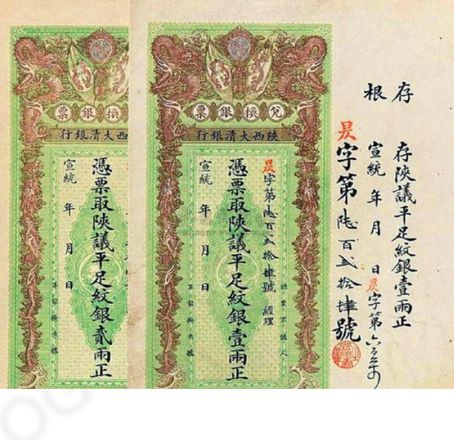 票銀換兌
行銀清大西陝
憑票取陝議平足紋銀貳兩正
宣統 年 月 日
票銀換兌
行銀清大西陝
昃字第陸百貳拾肆號 經理
憑票取陝議平足紋銀壹兩正
宣統 年 月 日
存根
存陝議平足紋銀壹兩正
宣統 年 月 日昃字第六百
昃字第陸百貳拾肆號